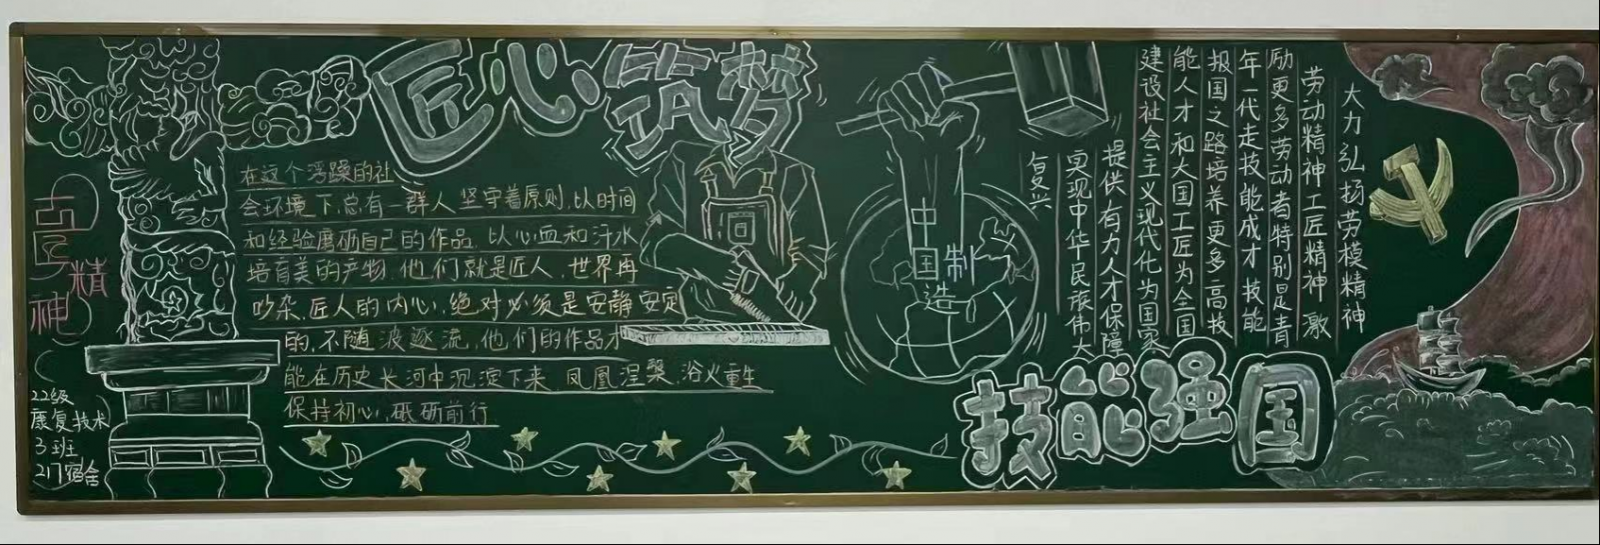 匠心筑梦
在这个浮躁的社
会环境下,总有一群人坚守着原则,以时间
和经验磨砺自己的作品,以心血和汗水
培育美的产物,他们就是匠人,世界再
吵杂,匠人的内心,绝对必须是安静安定
的,不随波逐流,他们的作品才
能在历史长河中沉淀下来,凤凰涅槃,浴火重生
保持初心,砥砺前行
匠
精
神
22级
康复技术
3班
217宿舍
中国
制
造
大力弘扬劳模精神
劳动精神工匠精神 激
励更多劳动者特别是青
年一代走技能成才 技能
报国之路培养更多高技
能人才和大国工匠为全国
建设社会主义现代化为国家
提供有力人才保障
实现中华民族伟大
复兴
技能强国